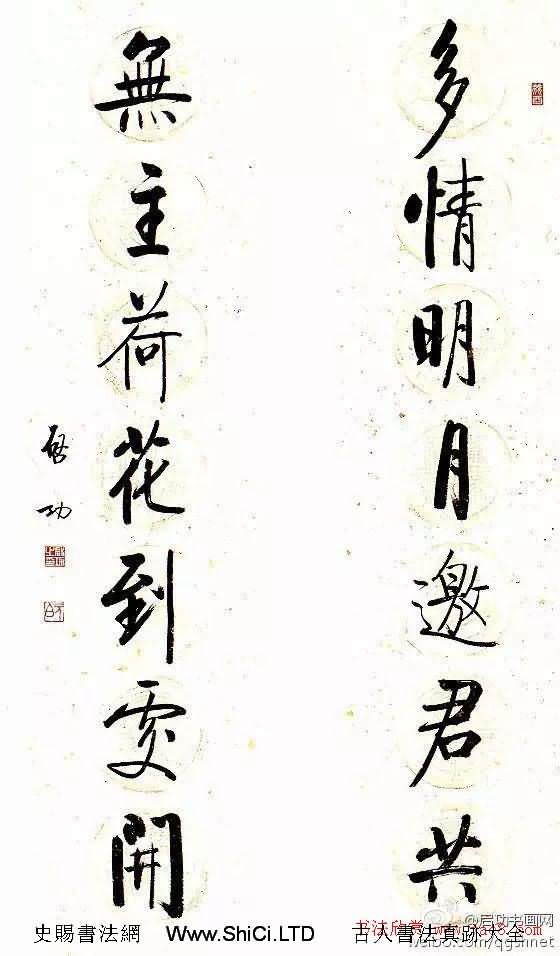 多情明月邀君共
無主荷花到處開
啓功
史賜書法網 Www.ShiCi.LTD 古人書法真跡大全
@启功书画网